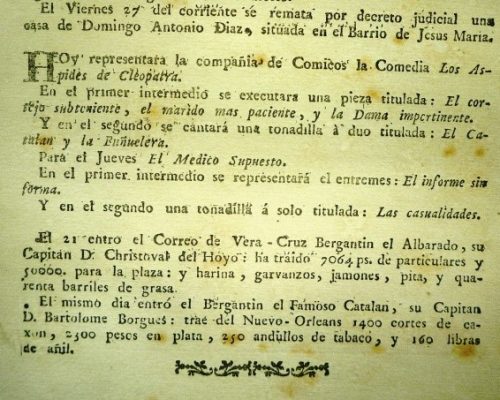 El Viernes 27 del corriente se remata por decreto judicial una
casa de Domingo Antonio Diaz, situada en el Barrio de Jesus Maria.
HOy representará la compañia de Comicos la Comedia Los As-
pides de Cleopatra.
En el primer intermedio se executara una pieza titulada: El cor-
tejo subteniente, el marido mas paciente, y la Dama impertinente.
Y en el segundo se cantará una tonadilla á duo titulada: El Ca-
talan y la Buñuelera.
Para el Jueves El Medico Supuesto.
En el primer intermedio se representará el entremes: El informe sin
forma.
Y en el segundo una tonadilla á solo titulada: Las casualidades.
El 21 entro el Correo de Vera-Cruz Bergantin el Albarado, su
Capitán D. Christoval del Hoyo: ha traido 7064 ps. de particulares y
50000. para la plaza: y harina, garvanzos, jamones, pita, y qua-
renta barriles de grasa.
El mismo dia entró el Bergantin el Famoso Catalan, su Capitan
D. Bartolome Borgues: trae del Nuevo-Orleans 1400 cortes de ca-
xon, 2300 pesos en plata, 250 andullos de tabaco, y 160 libras
de añil.